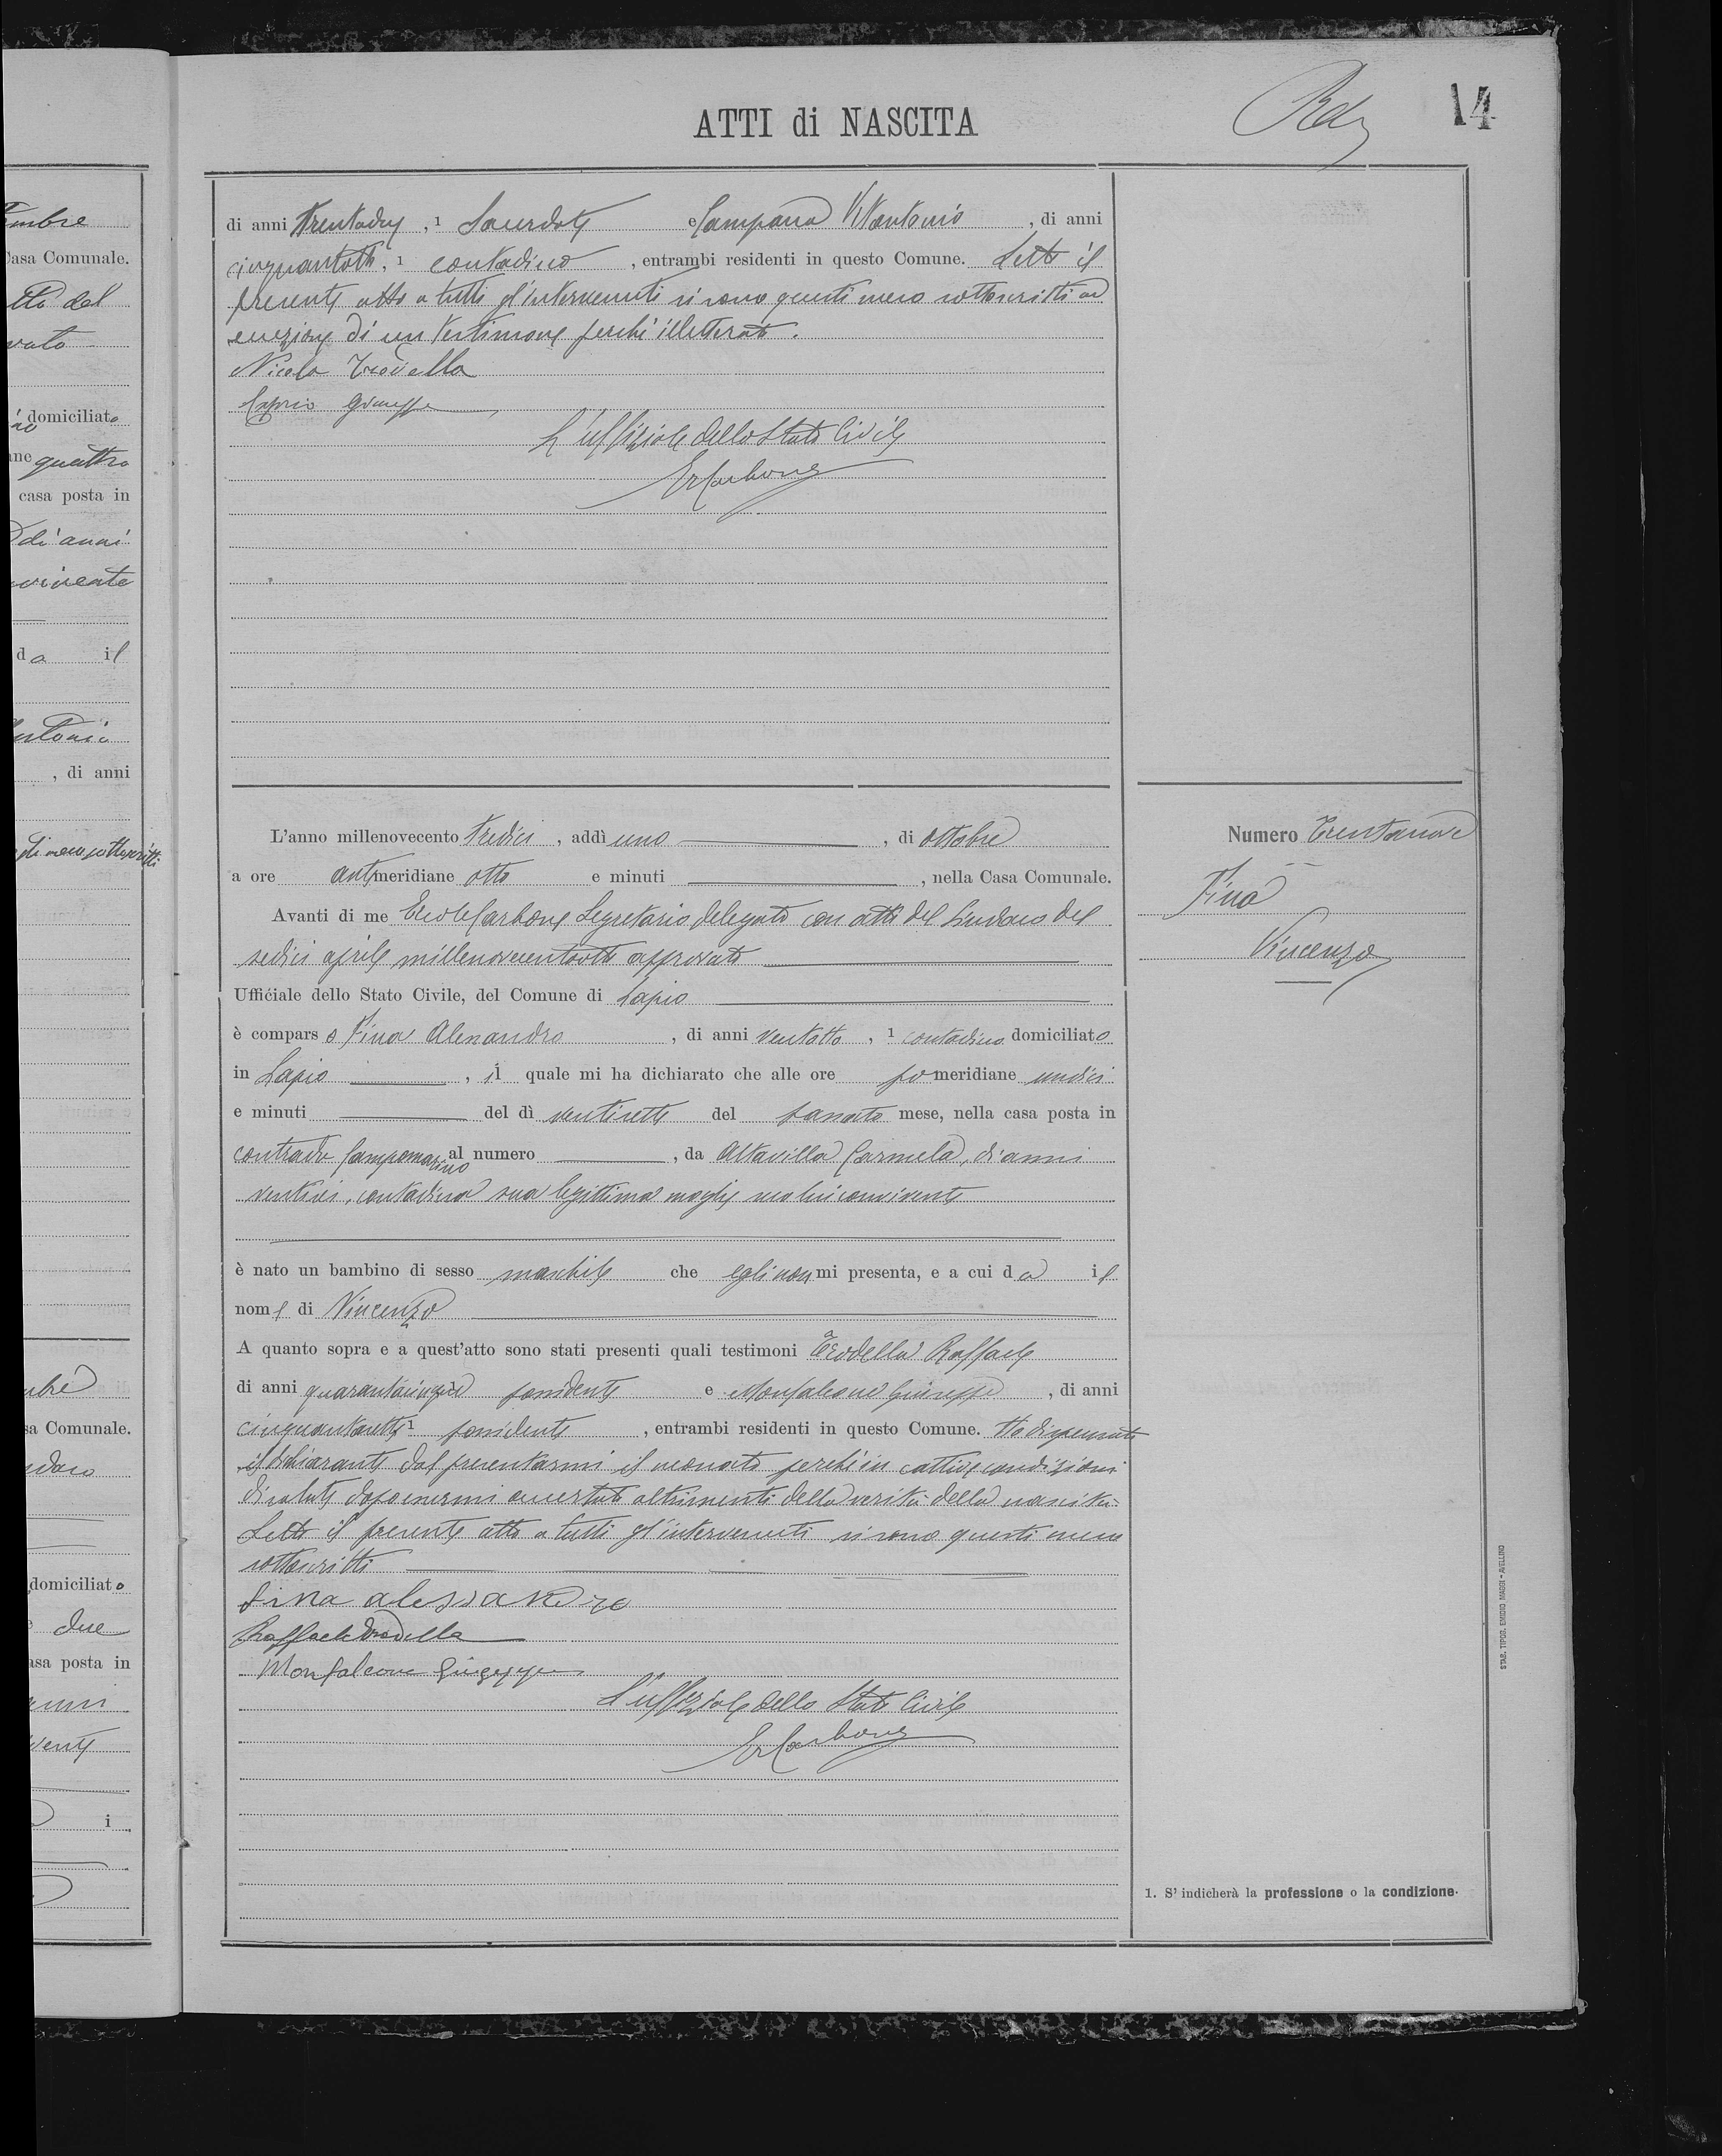 ATTI di NASCITA
14
di anni trentadue, 1 Sacerdote e Campana Vitantonio, di anni
cinquantotto, 1 contadino, entrambi residenti in questo Comune. Letto il
presente atto a tutti gl'intervenuti si sono questi meco sottoscritti ad
eccezione di un testimone perché illetterato.
Nicola Trodella
Caprio Giuseppe
L'uffiziale dello Stato Civile
Er Carbone
L'anno millenovecento tredici, addì uno, di ottobre
a ore antimeridiane otto e minuti, nella Casa Comunale.
Avanti di me Ercole Carbone Segretario delegato con atto del Sindaco del
sedici aprile millenovecentootto approvato
Ufficiale dello Stato Civile, del Comune di Lapio
è comparso Fina Alessandro, di anni ventotto, 1 contadino domiciliato
in Lapio, il quale mi ha dichiarato che alle ore pomeridiane undici
e minuti del dì ventisette del passato mese, nella casa posta in
contrada Campomarino al numero, da Altavilla Carmela, di anni
ventisei, contadina sua legittima moglie seco lui convivente
è nato un bambino di sesso maschile che egli non mi presenta, e a cui da il
nome di Vincenzo
A quanto sopra e a quest'atto sono stati presenti quali testimoni Trodella Raffaele
di anni quarantacinque possidente e Monfalcone Giuseppe, di anni
cinquantasette 1 possidente, entrambi residenti in questo Comune. Ho dispensato
il dichiarante dal presentarmi il neonato perché in cattive condizioni
di salute dopo essermi accertato altrimenti della verità della nascita.
Letto il presente atto a tutti gl'intervenuti si sono questi meco
sottoscritti
Fina alessandro
Raffaele Trodella
Monfalcone Giuseppe
L'uffiziale dello Stato Civile
Er Carbone
Numero Trentanove
Fina
Vincenzo
1. S' indicherà la professione o la condizione.
STAB. TIPOG. EMIDIO MAGGI - AVELLINO
embre
Casa Comunale.
del
domiciliato
quattro
casa posta in
di anni
convivente
da il
, di anni
meco sottoscritti
Comunale.
domiciliato
due
casa posta in
i